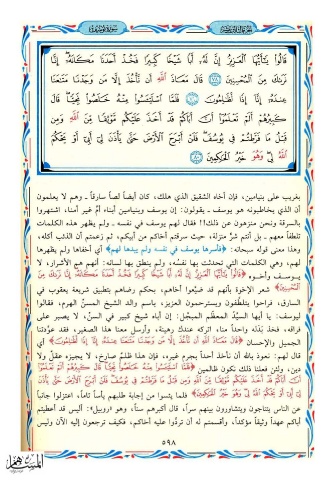 سورة يوسف
الجزء الثالث عشر
قَالُوا۟ يَٰٓأَيُّهَا ٱلْعَزِيزُ إِنَّ لَهُۥٓ أَبًا شَيْخًا كَبِيرًا فَخُذْ أَحَدَنَا مَكَانَهُۥٓ إِنَّا
نَرَىٰكَ مِنَ ٱلْمُحْسِنِينَ ٧٨ قَالَ مَعَاذَ ٱللَّهِ أَن نَّأْخُذَ إِلَّا مَن وَجَدْنَا مَتَٰعَنَا
عِندَهُۥٓ إِنَّآ إِذًا لَّظَٰلِمُونَ ٧٩ فَلَمَّا ٱسْتَيْـَٔسُوا۟ مِنْهُ خَلَصُوا۟ نَجِيًّا قَالَ
كَبِيرُهُمْ أَلَمْ تَعْلَمُوٓا۟ أَنَّ أَبَاكُمْ قَدْ أَخَذَ عَلَيْكُم مَّوْثِقًا مِّنَ ٱللَّهِ وَمِن
قَبْلُ مَا فَرَّطتُمْ فِى يُوسُفَ فَلَنْ أَبْرَحَ ٱلْأَرْضَ حَتَّىٰ يَأْذَنَ لِىٓ أَبِىٓ أَوْ يَحْكُمَ
ٱللَّهُ لِى وَهُوَ خَيْرُ ٱلْحَٰكِمِينَ ٨٠
بغريب على بنيامين، فإن أخاه الشقيق الذي هلك، كان أيضاً لصاً سارقاً ـ وهم لا يعلمون
أن الذي يخاطبونه هو يوسف ـ يقولون: إن يوسف وبنيامين أبناء أمٍّ غير أمنا، اشتهروا
بالسرقة ونحن منزهون عن ذلك!! فقال لهم يوسف في نفسه ـ ولم يظهر هذه الكلمات
تلطفاً معهم ـ بل أنتم شرٌّ منزلة، حيث سرقتم أخاكم من أبيكم، ثم زعمتم أن الذئب أكله،
وهذا معنى قوله سبحانه: ﴿فأسرها يوسف في نفسه ولم يبدها لهم﴾ أي أخفاها ولم يظهرها
لهم، وهي الكلمات التي تحدثت بها نفسه، ولم ينطق بها لسانه: أنهم هم الأشرار، لا
يوسف وأخوه ﴿قَالُوا يَا أَيُّهَا الْعَزِيزُ إِنَّ لَهُ أَبًا شَيْخًا كَبِيرًا فَخُذْ أَحَدَنَا مَكَانَهُ إِنَّا نَرَاكَ مِنَ
الْمُحْسِنِينَ﴾ شعر الإخوة بأنهم قد ضيّعوا أخاهم، بحكم رضاهم بتطبيق شريعة يعقوب في
السارق، فراحوا يتلطّفون ويسترحمون العزيز، باسم والد الشيخ المسنّ الهرم، فقالوا
ليوسف: يا أيها السيّد المعظّم المبجّل: إن أباه شيخ كبير في السنّ، لا يصبر على
فراقه، فخذ بدله واحداً منا، اتركه عندك رهينة، وأرسل معنا هذا الصغير، فقد عوّدتنا
الجميل والإحسان ﴿قَالَ مَعَاذَ اللَّهِ أَن نَّأْخُذَ إِلَّا مَن وَجَدْنَا مَتَاعَنَا عِندَهُ إِنَّا إِذًا لَّظَالِمُونَ﴾ أي
قال لهم: نعوذ بالله أن نأخذ أحداً بجرم غيره، فإن هذا ظلم صارخ، لا يجيزه عقلٌ ولا
دين، ولئن فعلنا ذلك نكون ظالمين ﴿فَلَمَّا اسْتَيْأَسُوا مِنْهُ خَلَصُوا نَجِيًّا قَالَ كَبِيرُهُمْ أَلَمْ تَعْلَمُوا
أَنَّ أَبَاكُمْ قَدْ أَخَذَ عَلَيْكُم مَّوْثِقًا مِّنَ اللَّهِ وَمِن قَبْلُ مَا فَرَّطتُمْ فِي يُوسُفَ فَلَنْ أَبْرَحَ الْأَرْضَ حَتَّى يَأْذَنَ
لِي أَبِي أَوْ يَحْكُمَ اللَّهُ لِي وَهُوَ خَيْرُ الْحَاكِمِينَ﴾ فلما يئسوا من إجابة طلبهم يأساً تاماً، اعتزلوا جانباً
عن الناس يتناجون ويتشاورون بينهم سراً، قال أكبرهم سناً، وهو «روبيل»: أليس قد أعطيتم
أباكم عهداً وثيقاً مؤكداً، وأقسمتم له أن تردّوا عليه أخاكم، فكيف ترجعون إليه الآن وليس
٥٩٨